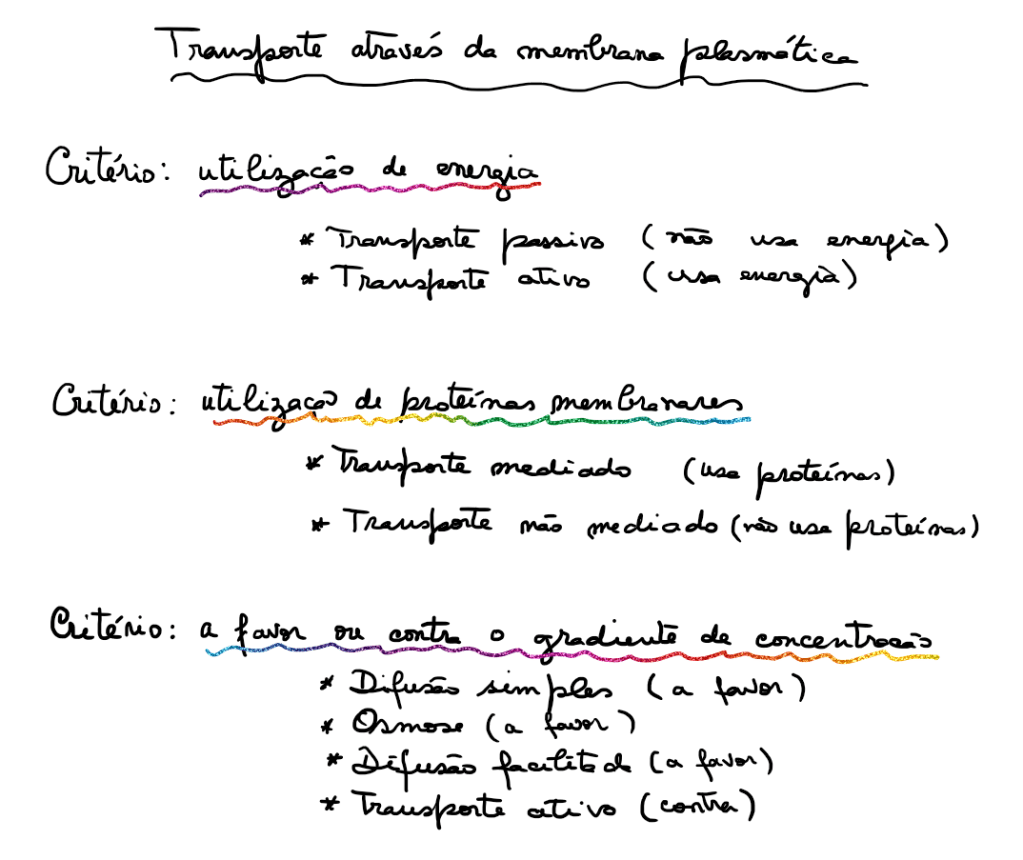 Transporte através da membrana plasmática
Critério: utilização de energia
* Transporte passivo (não usa energia)
* Transporte ativo (usa energia)
Critério: utilização de proteínas membranares
* Transporte mediado (usa proteínas)
* Transporte não mediado (não usa proteínas)
Critério: a favor ou contra o gradiente de concentração
* Difusão simples (a favor)
* Osmose (a favor)
* Difusão facilitada (a favor)
* Transporte ativo (contra)